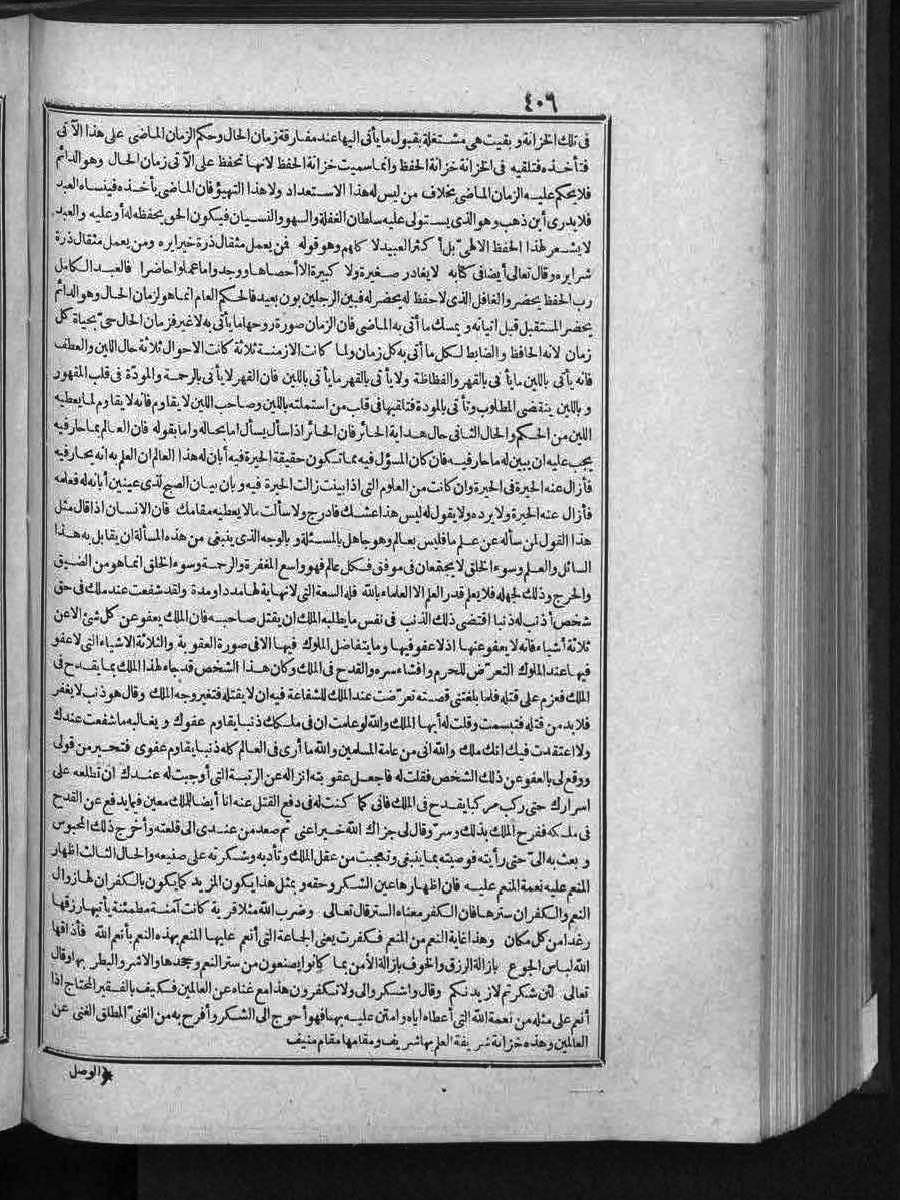 ٤٠٦
فى تلك الخزانة وبقيت هى مشتغلة بقبول ما يأتى اليها عند مفارقة زمان الحال وحكم الزمان الماضى على هذا الآتى
فتأخذه فتلقيه فى الخزانة خزانة الحفظ وانما سميت خزانة الحفظ لانها تحفظ على الآتى زمان الحال وهو الدائم
فلا يحكم عليه الزمان الماضى بخلاف من ليس له هذا الاستعداد ولا هذا التهيؤ فان الماضى يأخذه فينساه العبد
فلا يدرى أين ذهب وهو الذى يستولى عليه سلطان الغفلة والسهو والنسيان فيكون الحق يحفظه له أو عليه والعبد
لا يشعر لهذا الحفظ الالهىّ بل أكثر العبيد لا كلهم وهو قوله فمن يعمل مثقال ذرة خيرا يره ومن يعمل مثقال ذرة
شرا يره وقال تعالى أيضا فى كتابه لا يغادر صغيرة ولا كبيرة الا أحصاها ووجدوا ما عملوا حاضرا فالعبد الكامل
رب الحفظ يحضر والغافل الذى لا حفظ له يحضر له فبين الرجلين بون بعيد فالحكم العام انما هو لزمان الحال وهو الدائم
يحضر المستقبل قبل اتيانه ويمسك ما أتى به الماضى فان الزمان صورة روحها ما يأتى به لا غير فزمان الحال حىّ بحياة كل
زمان لانه الحافظ والضابط لكل ما أتى به كل زمان ولما كانت الازمنة ثلاثة كانت الاحوال ثلاثة حال اللين والعطف
فانه يأتى باللين ما يأتى بالقهر والفظاظة ولا يأتى بالقهر ما يأتى باللين فان القهر لا يأتى بالرحمة والمودّة فى قلب المقهور
وباللين ينقضى المطلوب وتأتى بالمودة فتلقيها فى قلب من استملته باللين وصاحب اللين لا يقاوم فانه لا يقاوم لما يعطيه
اللين من الحكم والحال الثانى حال هداية الحائر فان الحائر اذا سأل يسأل اما بحاله واما بقوله فان العالم بما حار فيه
يجب عليه ان يبين له ما حار فيه فان كان المسؤل فيه مما تكون حقيقة الحيرة فيه أبان له هذا العالم ان العلم به انه يحار فيه
فأزال عنه الحيرة فى الحيرة وان كانت من العلوم التى اذا بينت زالت الحيرة فيه وبان بيان الصبح لذى عينين أبانه له فعلمه
فأزال عنه الحيرة ولا يرده ولا يقول له ليس هذا عشك فادرج ولا سألت ما لا يعطيه مقامك فان الانسان اذا قال مثل
هذا القول لمن سأله عن علم ما فليس بعالم وهو جاهل بالمسئلة وبالوجه الذى ينبغى من هذه المسألة ان يقابل به هذا
السائل والعلم وسوء الخلق لا يجتمعان فى موفق فكل عالم فهو واسع المغفرة والرحمة وسوء الخلق انما هو من الضيق
والحرج وذلك لجهله فلا يعلم قدر العلم الا العلماء بالله فله السعة التى لا نهاية لها مددا ومدة ولقد شفعت عند ملك فى حق
شخص أذنب له ذنبا اقتضى ذلك الذنب فى نفس ما يطلبه الملك ان يقتل صاحبه فان الملك يعفو عن كل شئ الا عن
ثلاثة أشياء فانه لا يعفو عنها اذ لا عفو فيها وما يتفاضل الملوك فيها الا فى صورة العقوبة والثلاثة الاشياء التى لا عفو
فيها عند الملوك التعرّض للحرم وافشاء سره والقدح فى الملك وكان هذا الشخص قد جاء لهذا الملك بما يقدح فى
الملك فعزم على قتله فلما بلغتنى قصته تعرّضت عند الملك للشفاعة فيه ان لا يقتله فتغير وجه الملك وقال هو ذنب لا يغفر
فلا بد من قتله فتبسمت وقلت له أيها الملك والله لو علمت ان فى ملكك ذنبا يقاوم عفوك ويغالبه ما شفعت عندك
ولا اعتقدت فيك انك ملك والله انى من عامة المسلمين والله ما أرى فى العالم كله ذنبا يقاوم عفوى فتحير من قولى
ووقع لى بالعفو عن ذلك الشخص فقلت له فاجعل عقوبته انزاله عن الرتبة التى أوجبت له عندك ان تطلعه على
اسرارك حتى ركب مركبا يقدح فى الملك فانى كما كنت له فى دفع القتل عنه انا أيضا للملك معين فيما يدفع عن القدح
فى ملكه ففرح الملك بذلك وسرّ وقال لى جزاك الله خيرا عنى ثم صعد من عندى الى قلعته وأخرج ذلك المحبوس
وبعث به الىّ حتى رأيته فوصيته بما ينبغى وتعجبت من عقل الملك وتأدبه وشكرته على صنيعه والحال الثالث اظهار
المنعم عليه نعمة المنعم عليه فان اظهارها عين الشكر وحقه وبمثل هذا يكون المزيد كما يكون بالكفران لها زوال
النعم والكفران سترها فان الكفر معناه الستر قال تعالى وضرب الله مثلا قرية كانت آمنة مطمئنة يأتيها رزقها
رغدا من كل مكان وهذا غاية النعم من المنعم فكفرت يعنى الجماعة التى أنعم عليها المنعم بهذه النعم بأنعم الله فأذاقها
الله لباس الجوع بازالة الرزق والخوف بازالة الأمن بما كانوا يصنعون من ستر النعم وجحدها والاشر والبطر بها وقال
تعالى لئن شكرتم لازيدنكم وقال واشكروا لى ولا تكفرون هذا مع غناه عن العالمين فكيف بالفقير المحتاج اذا
أنعم على مثله من نعمة الله التى أعطاه اياه وامتن عليه بها فهو أحوج الى الشكر وأفرح به من الغنىّ المطلق الغنى عن
العالمين وهذه خزانة شريفة العلم بها شريف ومقامها مقام منيف
*(الوصل